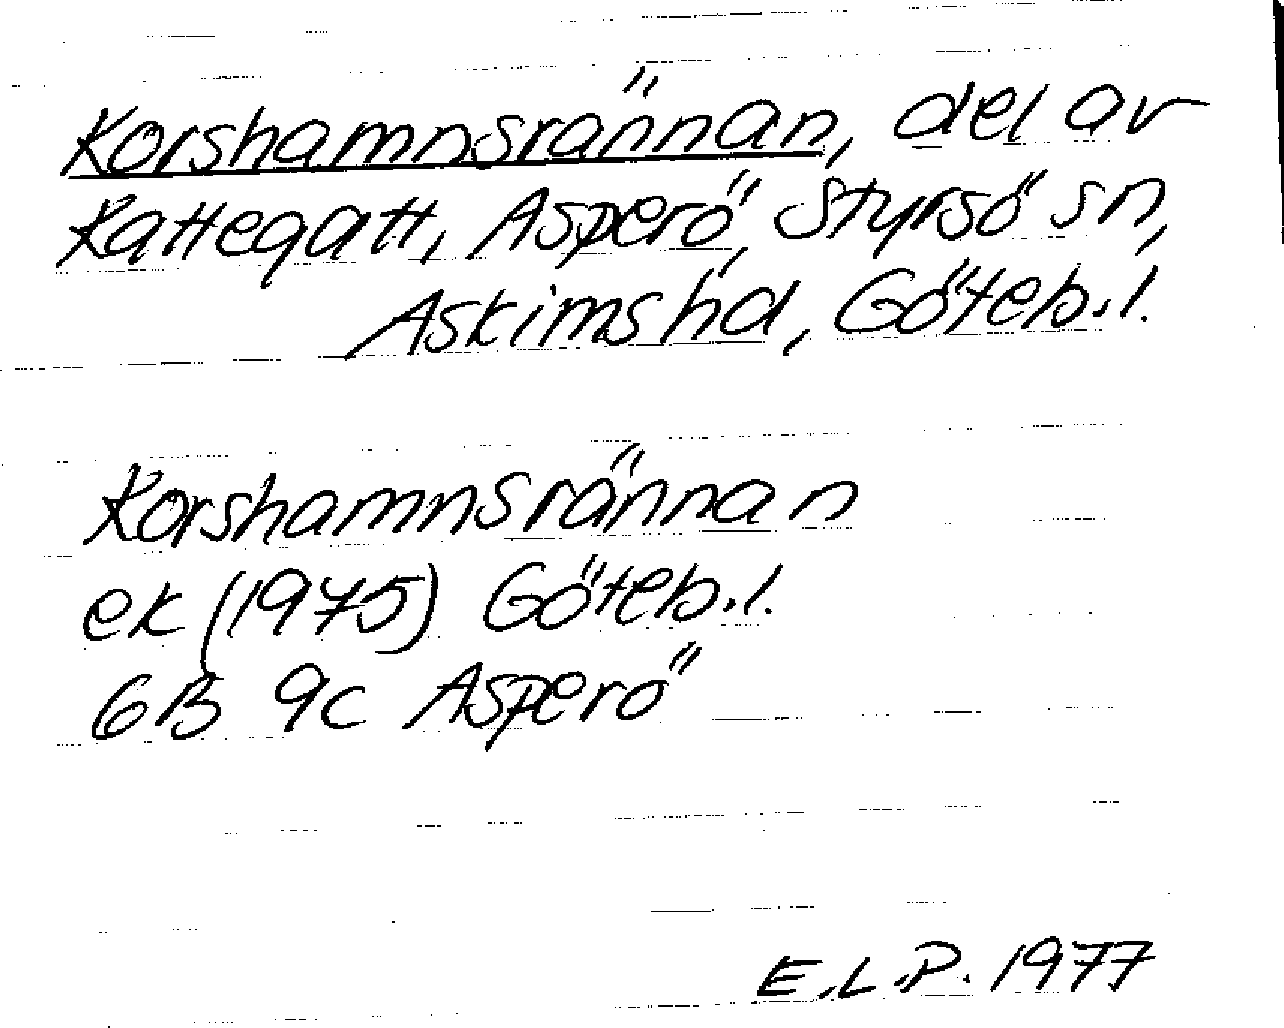 Korshamnsrännan, del av
Kattegatt, Asperö, Styrsö sn,
Askims hd, Göteb.l.
Korshamnsrännan
ek (1975) Göteb.l.
6B 9c Asperö
E.L.P. 1977